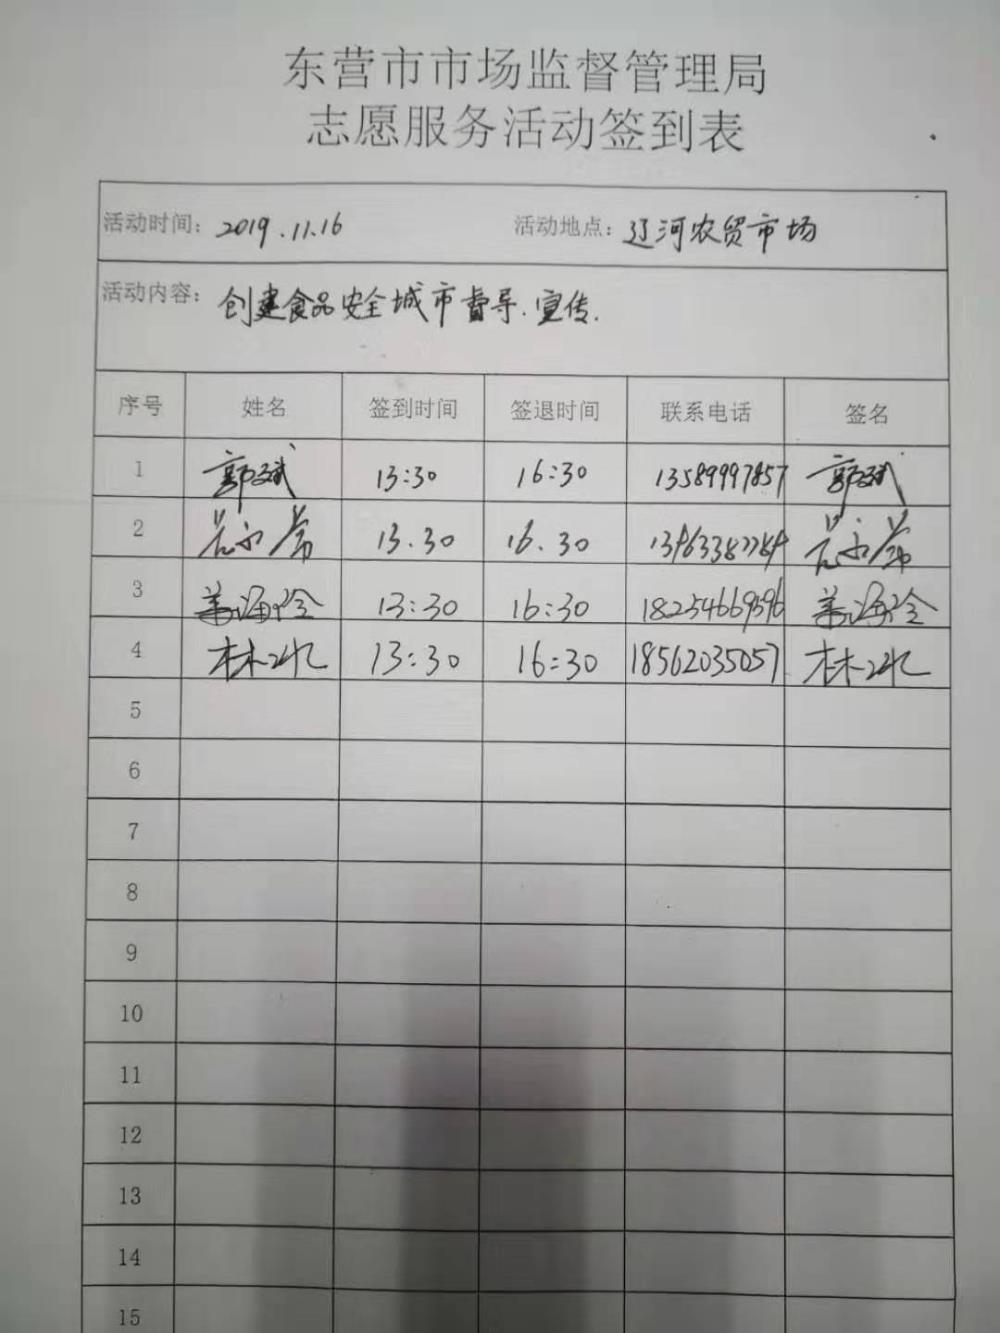 东营市市场监督管理局
志愿服务活动签到表
活动时间: 2019.11.16 活动地点: 辽河农贸市场
活动内容: 创建食品安全城市督导.宣传.
序号 姓名 签到时间 签退时间 联系电话 签名
1 郭斌 13:30 16:30 13589997857 郭斌
2 13.30 16.30
3 13:30 16:30 18254669596
4 林冰 13:30 16:30 18562035057 林冰
5
6
7
8
9
10
11
12
13
14
15